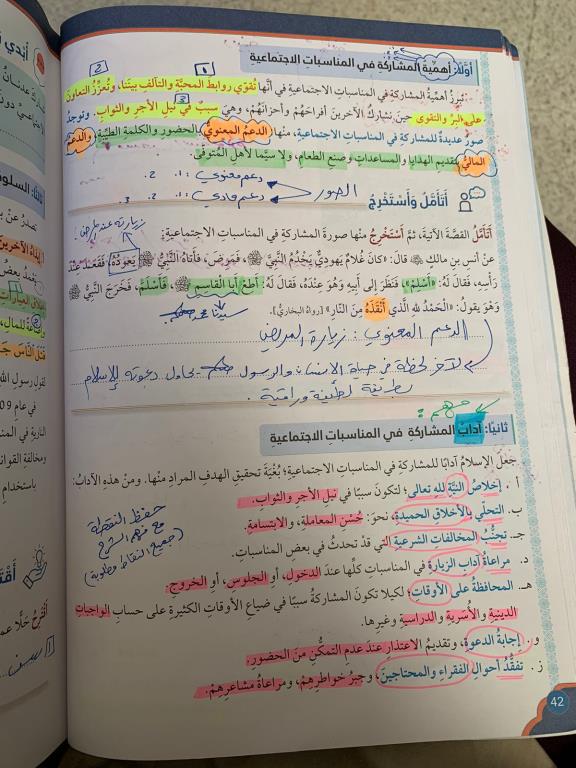 أوّلًا: أهمّيّة المشاركةِ في المناسباتِ الاجتماعيةِ
تبرزُ أهميّةُ المشاركةِ في المناسباتِ الاجتماعيةِ في أنّها تُقوّي روابطَ المحبّةِ والتآلفِ بيننا، وتُعزّزُ التعاونَ
على البِرِّ والتقوى حينَ نشاركُ الآخرينَ أفراحَهُمْ وأحزانَهُمْ، وهيَ سببٌ في نَيلِ الأجرِ والثوابِ. وتوجدُ
صورٌ عديدةٌ للمشاركةِ في المناسباتِ الاجتماعيةِ، منْها: الدعمُ المعنويُّ بالحضورِ والكلمةِ الطيّبةِ، والدعمُ
الماليُّ بتقديمِ الهدايا والمساعداتِ وصنعِ الطعامِ، ولا سيّما لأهلِ المُتوفّى.
الصور
دعم معنوي: ١. ٢.
دعم مادي: ١. ٢. ٣.
أَتَأَمَّلُ وَأَسْتَخْرِجُ
أتأمّلُ القصّةَ الآتيةَ، ثمَّ أستخرجُ منْها صورةَ المشاركةِ في المناسباتِ الاجتماعيةِ:
عنْ أنسِ بنِ مالكٍ قالَ: «كانَ غُلامٌ يَهوديٌّ يَخْدُمُ النَّبِيَّ ﷺ، فَمَرِضَ، فَأَتاهُ النَّبِيُّ ﷺ يَعودُهُ، فَقَعَدَ عِنْدَ
رَأْسِهِ، فَقالَ لَهُ: «أَسْلِمْ»، فَنَظَرَ إِلى أَبيهِ وَهُوَ عِنْدَهُ، فَقالَ لَهُ: أَطِعْ أَبا القاسِمِ ﷺ، فَأَسْلَمَ، فَخَرَجَ النَّبِيُّ ﷺ
وَهُوَ يَقولُ: «الْحَمْدُ للهِ الَّذي أَنْقَذَهُ مِنَ النّارِ» [رواهُ البخاريُّ].
سيدنا محمد
الدعم المعنوي: زيارة المريض
لآخر لحظة في حياة الإنسان والرسول يحاول دعوته للإسلام
بطريقة لطيفة وراقية.
مهم:
ثانيًا: آدابُ المشاركةِ في المناسباتِ الاجتماعيةِ
جعلَ الإسلامُ آدابًا للمشاركةِ في المناسباتِ الاجتماعيةِ؛ بُغْيَةَ تحقيقِ الهدفِ المرادِ منْها. ومنْ هذهِ الآدابِ:
أ . إخلاصُ النيّةِ للهِ تعالى؛ لتكونَ سببًا في نَيلِ الأجرِ والثوابِ.
ب. التحلّي بالأخلاقِ الحميدةِ، نحوَ: حُسْنِ المعاملةِ، والابتسامةِ.
جـ. تجنُّبُ المخالفاتِ الشرعيةِ التي قدْ تحدثُ في بعضِ المناسباتِ.
د. مراعاةُ آدابِ الزيارةِ في المناسباتِ كلِّها عندَ الدخولِ، أوِ الجلوسِ، أوِ الخروجِ.
هـ. المحافظةُ على الأوقاتِ؛ لكيلا تكونَ المشاركةُ سببًا في ضياعِ الأوقاتِ الكثيرةِ على حسابِ الواجباتِ
الدينيةِ والأُسْريةِ والدراسيةِ وغيرِها.
و. إجابةُ الدعوةِ، وتقديمُ الاعتذارِ عندَ عدمِ التمكّنِ منَ الحضورِ.
ز. تفقُّدُ أحوالِ الفقراءِ والمحتاجينَ، وجبرُ خواطرِهِمْ، ومراعاةُ مشاعرِهِمْ.
حفظ النقطة
مع فهم الشرح
(جميع النقاط مطلوبة)
42